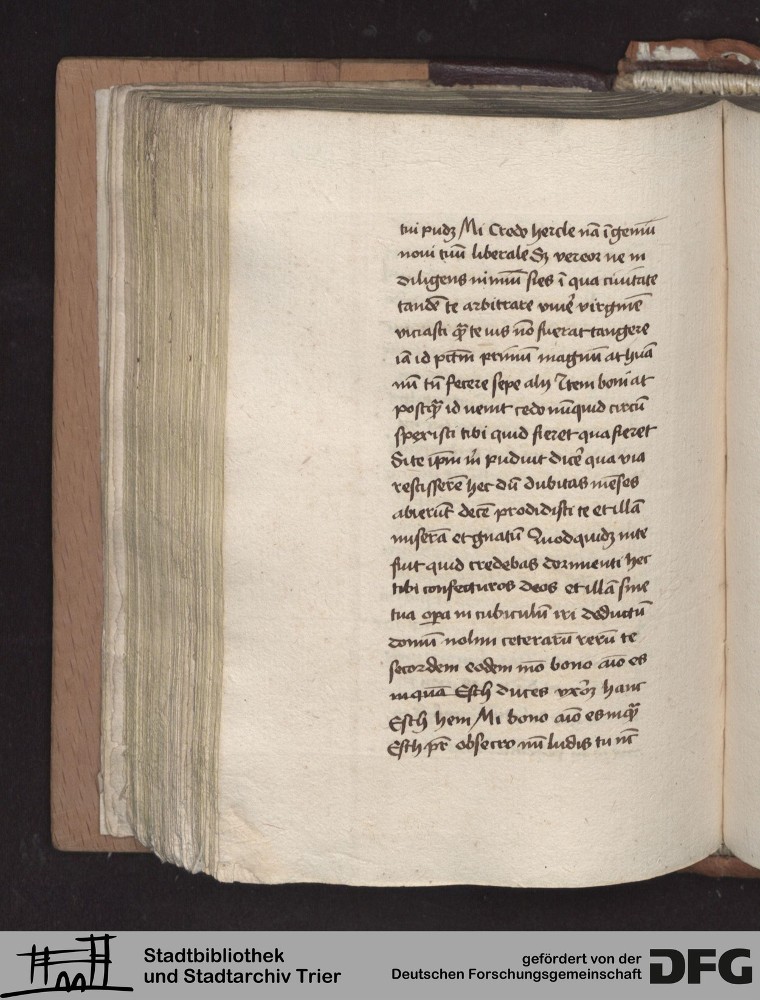 tui pudꝫ Mi Credo hercle nā īgeniū
noui tuū liberale Sꝫ vereor ne in
diligens nimiū sies ī qua ciuitate
tandē te arbitrare viuē virginē
viciasti q̄ȝ te ius nō fuerat tangere
iā id pctm̄ primū magnū at huā
nū tn̄ fecere sepe alij Item boni at
postq̄ȝ id uenit cedo nūquid circū
spexisti tibi quid fieret qua fieret
Si te ip̄m m̄ puduit dicē qua via
rescisserē hec dū dubitas mēses
abierūt decē prodidisti te et illā
miserā et gnatū Quod quidꝫ in te
fuit quid credebas dormienti hec
tibi confecturos deos et illā sine
tua opa in cubiculū iri deductū
domū nolim ceterarū rerū te
secordem eodem mō bono aīo es
inquā Esch duces vxōꝫ hanc
Esch hem Mi bono aīo es inq̄ȝ
Esch pr̄ obsecro nū ludis tu nc̄
Stadtbibliothek
und Stadtarchiv Trier
gefördert von der
Deutschen Forschungsgemeinschaft
DFG